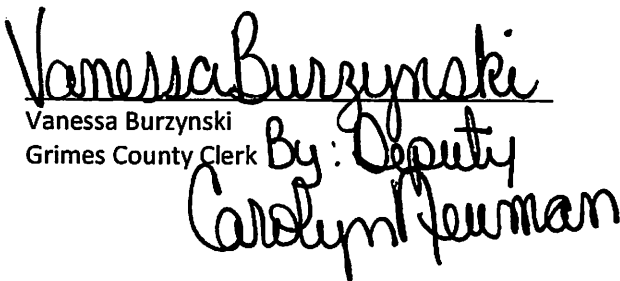 Vanessa Burzynski
Vanessa Burzynski
Grimes County Clerk By: Deputy
Carolyn Neuman